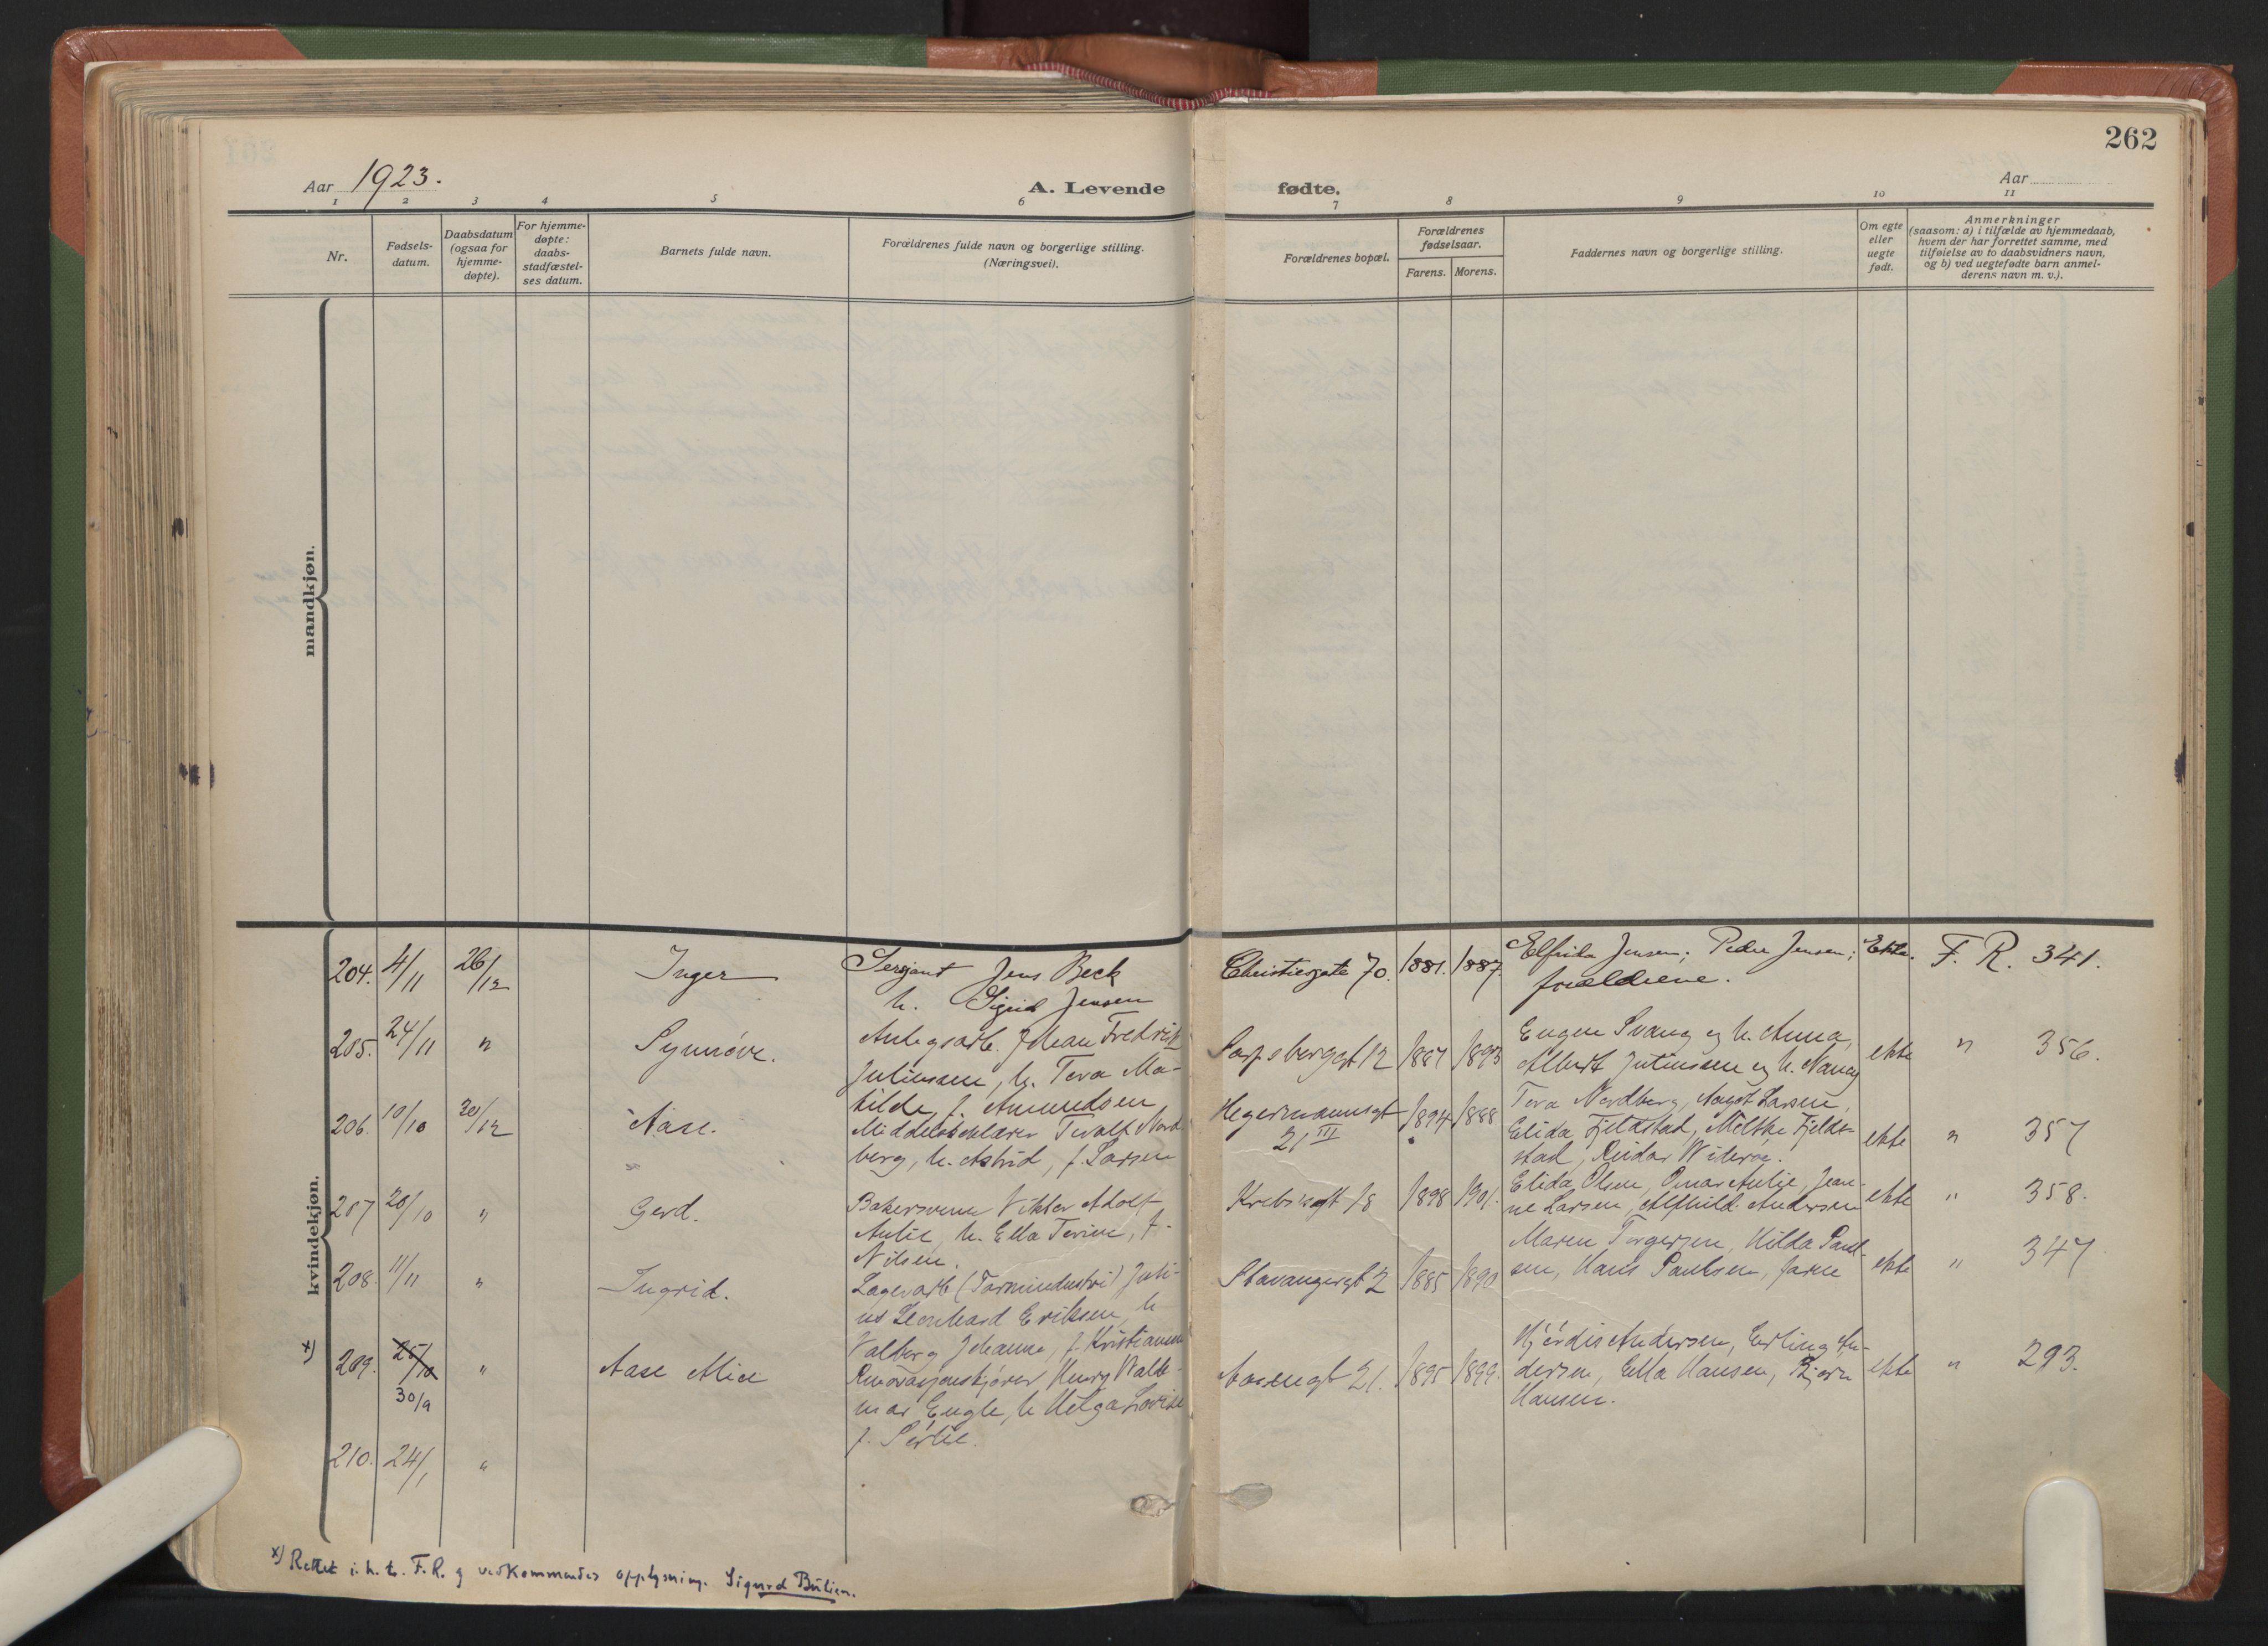 262
Aar 1923.
A. Levende fødte.
Aar
1 2 3 4 5 6 7 8 9 10 11
Nr.
Fødsels-
datum.
Daabsdatum
(ogsaa for
hjemme-
døpte).
For hjemme-
døpte:
daabs-
stadfæstel-
ses datum.
Barnets fulde navn.
Forældrenes fulde navn og borgerlige stilling.
(Næringsvei).
Forældrenes bopæl.
Forældrenes
fødselsaar.
Farens. Morens.
Faddernes navn og borgerlige stilling.
Om egte
eller
uegte
født.
Anmerkninger
(saasom: a) i tilfælde av hjemmedaab,
hvem der har forrettet samme, med
tilføielse av to daabsvidners navn,
og b) ved uegtefødte barn anmel-
derens navn m. v.).
mandkjøn.
kvindekjøn.
204. 4/11 26/12 Inger
Sergeant Jens Beck
h. Sigrid Jensen
Christiesgate 70. 1881. 1887
Elfrida Jensen; Peder Jensen;
forældrene.
Ekte. F. R. 341.
205. 24/11 " Synnöve.
Anlegsarb. Johan Fredrik
Juliussen, h. Tora Ma-
tilde, f. Amundsen
Sarpsborggt 12 1887 1893
Eugen Svang og h. Anna,
Albert Juliussen og h. Nancy
ekte " 356.
206. 10/10 30/12 Aase.
Nord-
berg, h. Astrid, f. Larsen
Hegermannsgt
21 III
1894 1888
Tora Nordberg, Aagot Larsen,
Elida Fjeldstad, Fjeld-
stad, Reidar Wideröe.
ekte " 357
207 20/10 " Gerd.
Bakersvenn Viktor Adolf
Aulie, h. Ella f.
Nilsen.
Krebsegt 18 1898 1901.
Elida Olsen, Aulie, Jean-
ne Larsen, Alfhild Andersen
ekte " 358.
208. 11/11 " Ingrid.
Lagerarb (Tarmindustri) Juli-
us Leonhard Eriksen, h
Valborg Johanne, f. Kristiansen
Stavangergt 2 1885 1890
Maren Torgersen, Hilda Paul-
sen, Hans Paulsen, faren
ekte " 347
x) 209. 25/10 " Aase Alice
30/9
Renovasjonskjører Henry Walde-
mar Engle, h Helga Lovise
f.
Aasengt 21. 1895 1899.
Hjördis Andersen, Erling An-
dersen, Ella Hansen, Bjørn
Hansen.
ekte " 293.
210. 24/1 "
x) Rettet i. h. t. F.R. og vedkommendes opplysning. Sigurd Bülien.